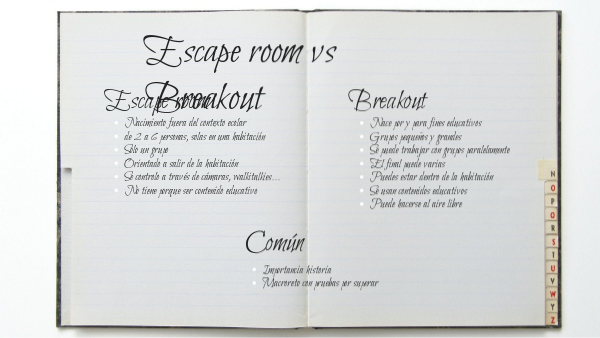 Escape room vs
Breakout
Escape room
Nacimiento fuera del contexto escolar
de 2 a 6 personas, solas en una habitación
Sólo un grupo
Orientado a salir de la habitación
Se controla a través de cámaras, walkitalkies...
No tiene porque ser contenido educativo
Breakout
Nace por y para fines educativos
Grupos pequeños y grandes
Se puede trabajar con grupos paralelamente
El final puede varias
Puedes estar dentro de la habitación
Se usan contenidos educativos
Puede hacerse al aire libre
Común
Importancia historia
Macroreto con pruebas por superar
N
O
P
Q
R
S
T
U
V
W
Y
Z